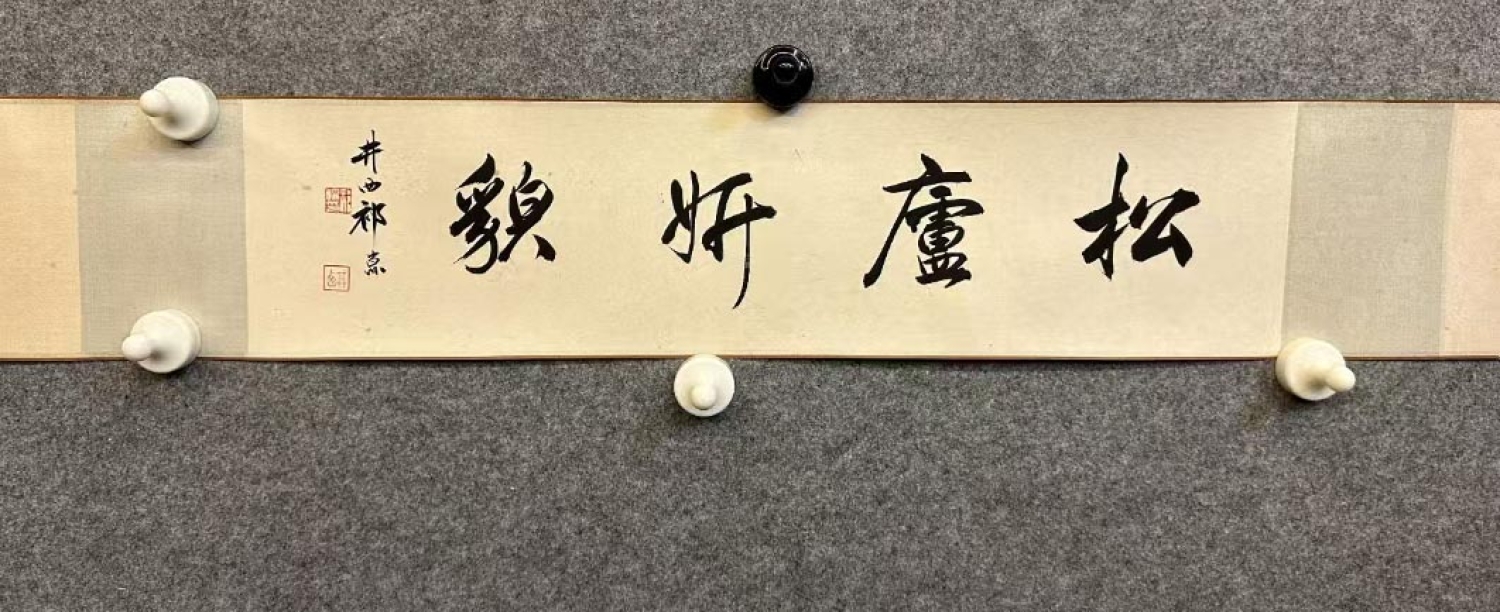 松廬妍貌
井西祁京